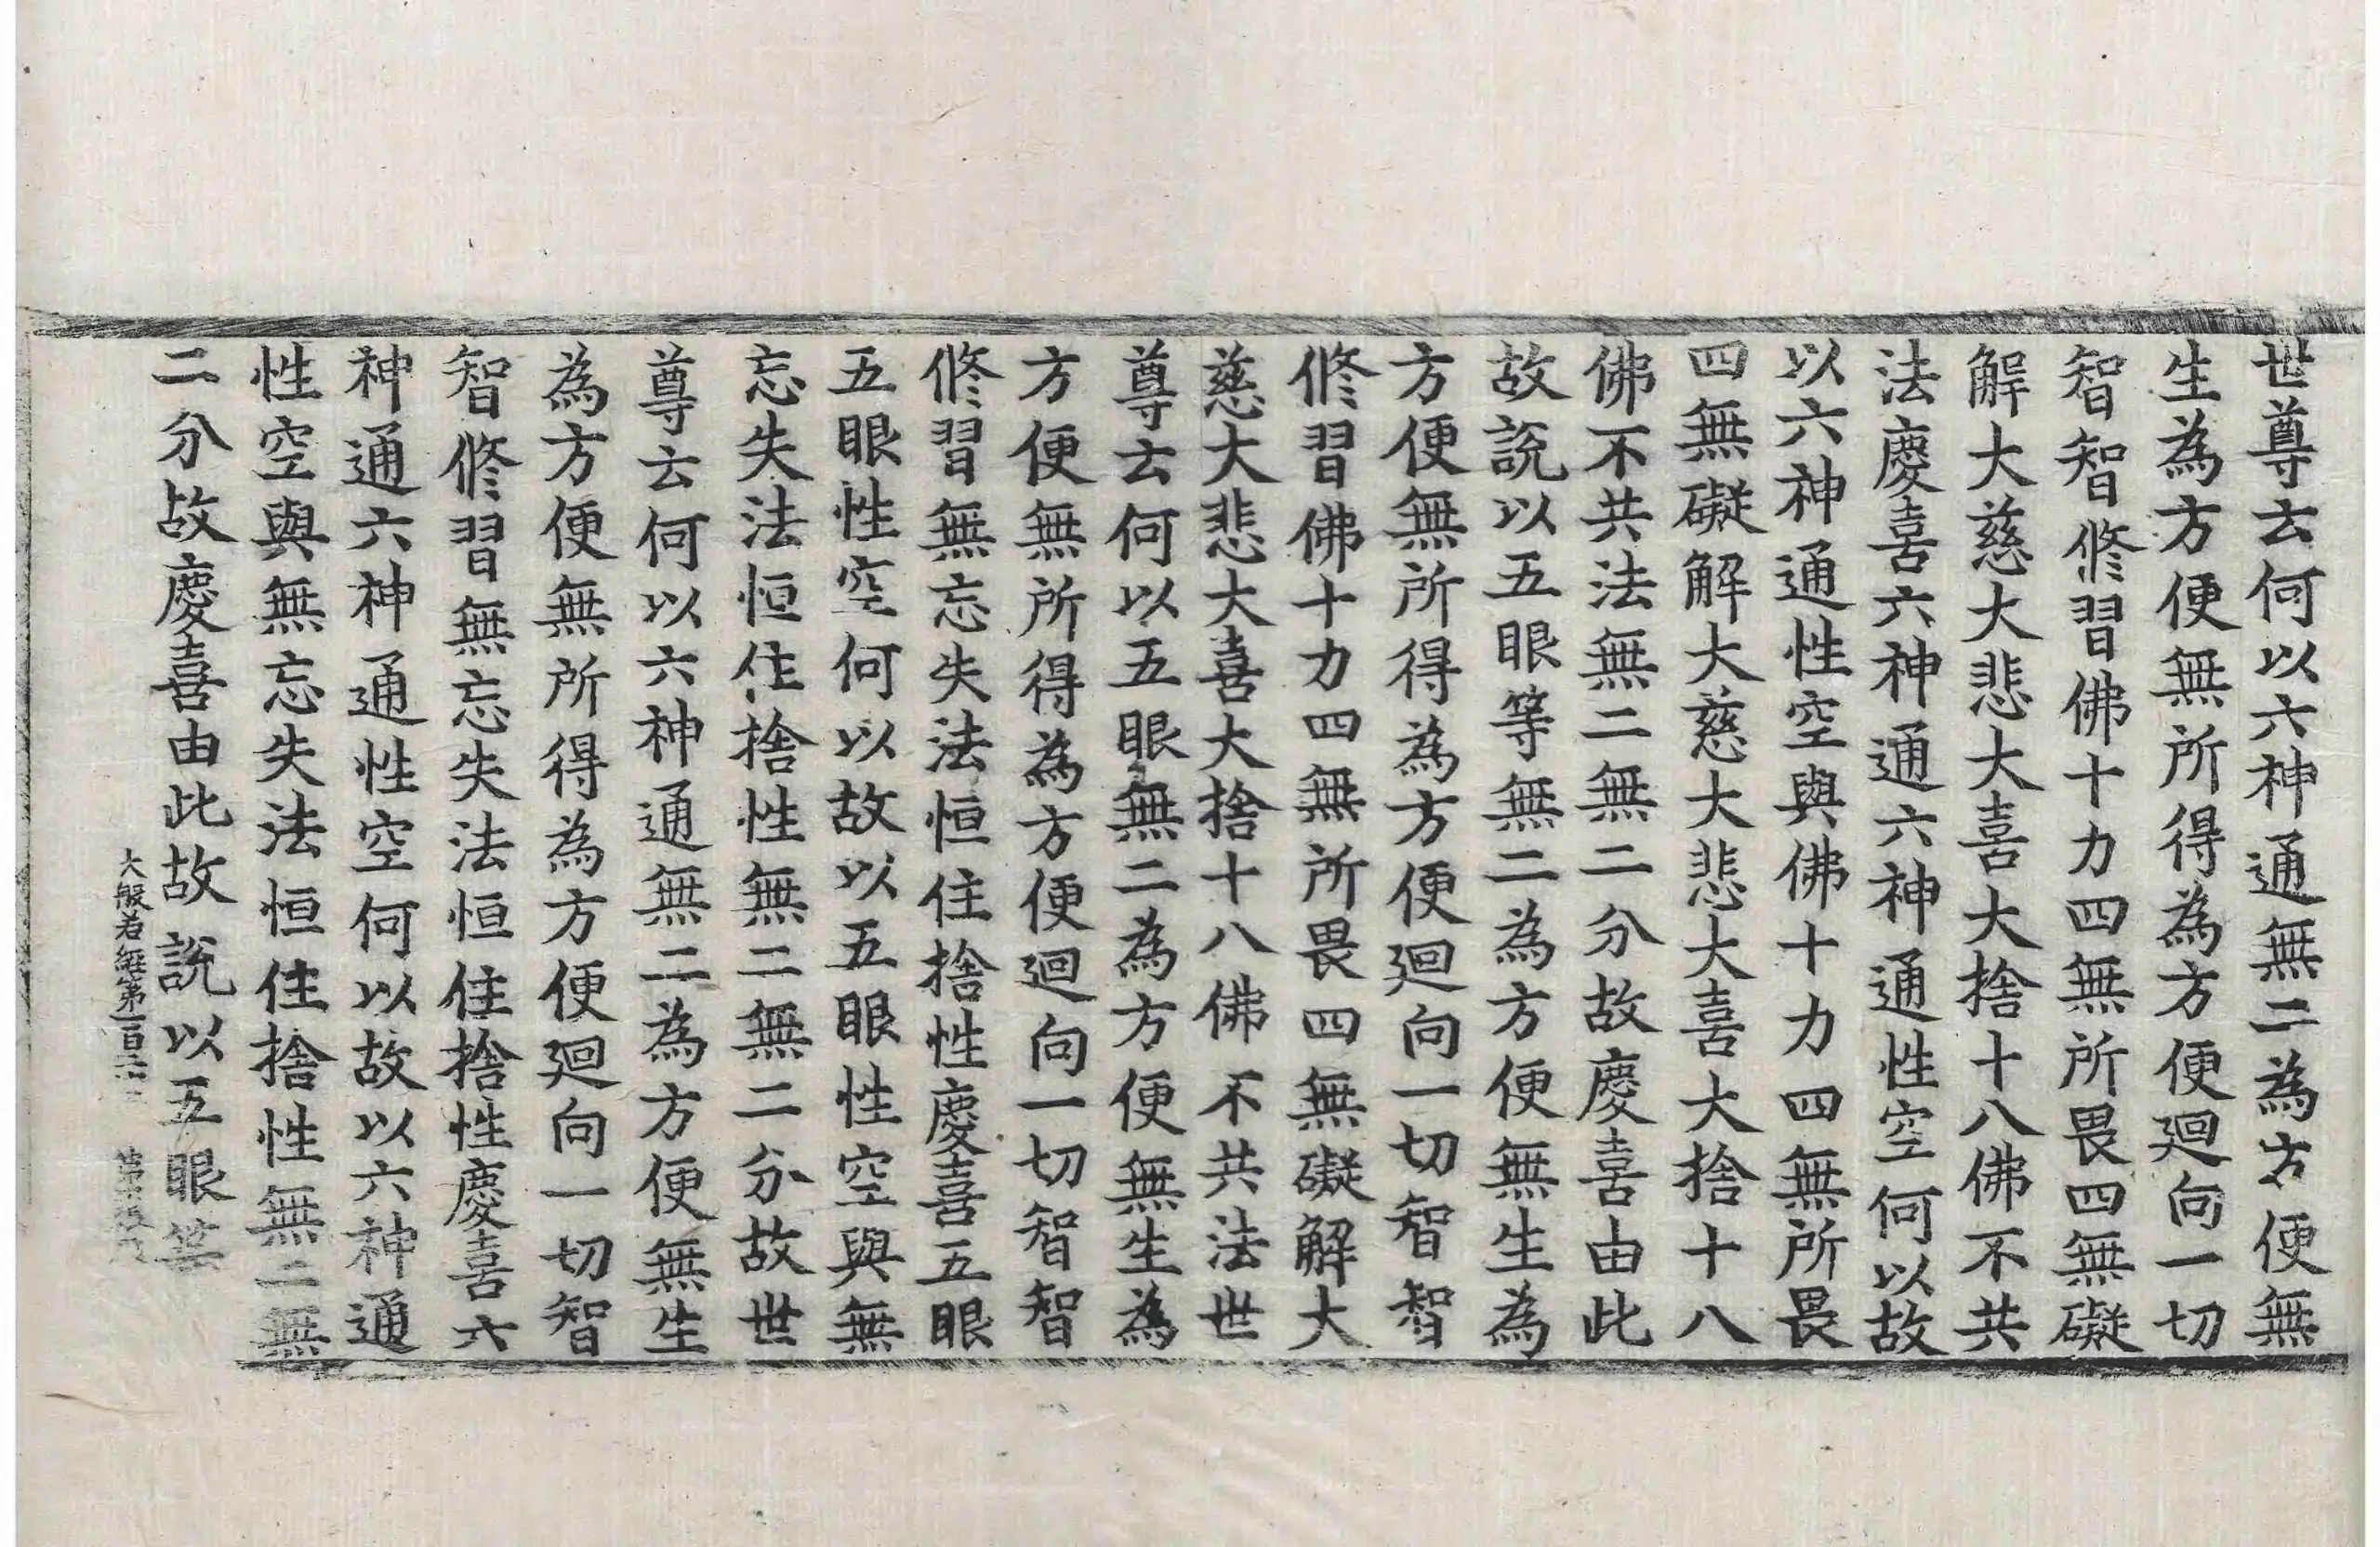 世尊云何以六神通無二為方便無
生為方便無所得為方便迴向一切
智智修習佛十力四無所畏四無礙
解大慈大悲大喜大捨十八佛不共
法慶喜六神通六神通性空何以故
以六神通性空與佛十力四無所畏
四無礙解大慈大悲大喜大捨十八
佛不共法無二無二分故慶喜由此
故說以五眼等無二為方便無生為
方便無所得為方便迴向一切智智
修習佛十力四無所畏四無礙解大
慈大悲大喜大捨十八佛不共法世
尊云何以五眼無二為方便無生為
方便無所得為方便迴向一切智智
修習無忘失法恒住捨性慶喜五眼
五眼性空何以故以五眼性空與無
忘失法恒住捨性無二無二分故世
尊云何以六神通無二為方便無生
為方便無所得為方便迴向一切智
智修習無忘失法恒住捨性慶喜六
神通六神通性空何以故以六神通
性空與無忘失法恒住捨性無二無
二分故慶喜由此故說以五眼等
大般若經第一百二十 第 張